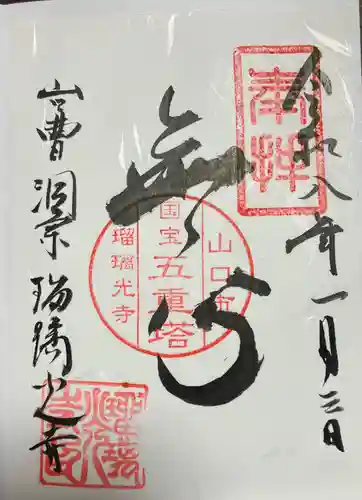 奉拝
令和八年一月三日
山口市
国宝
五重塔
瑠璃光寺
曹洞宗 瑠璃光寺